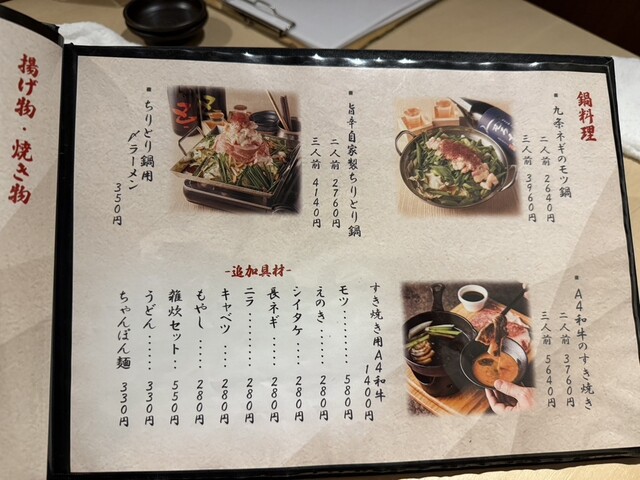 鍋料理
九条ネギのモツ鍋
二人前 2640円
三人前 3960円
旨辛自家製ちりとり鍋
二人前 2760円
三人前 4140円
ちりとり鍋用
〆ラーメン
350円
A4和牛のすき焼き
二人前 3760円
三人前 5640円
-追加具材-
すき焼き用A4和牛
1400円
モツ........580円
えのき......280円
シイタケ....280円
長ネギ......280円
ニラ........280円
キャベツ....280円
もやし.....280円
雑炊セット..550円
うどん......330円
ちゃんぽん麺 330円
揚げ物・焼き物